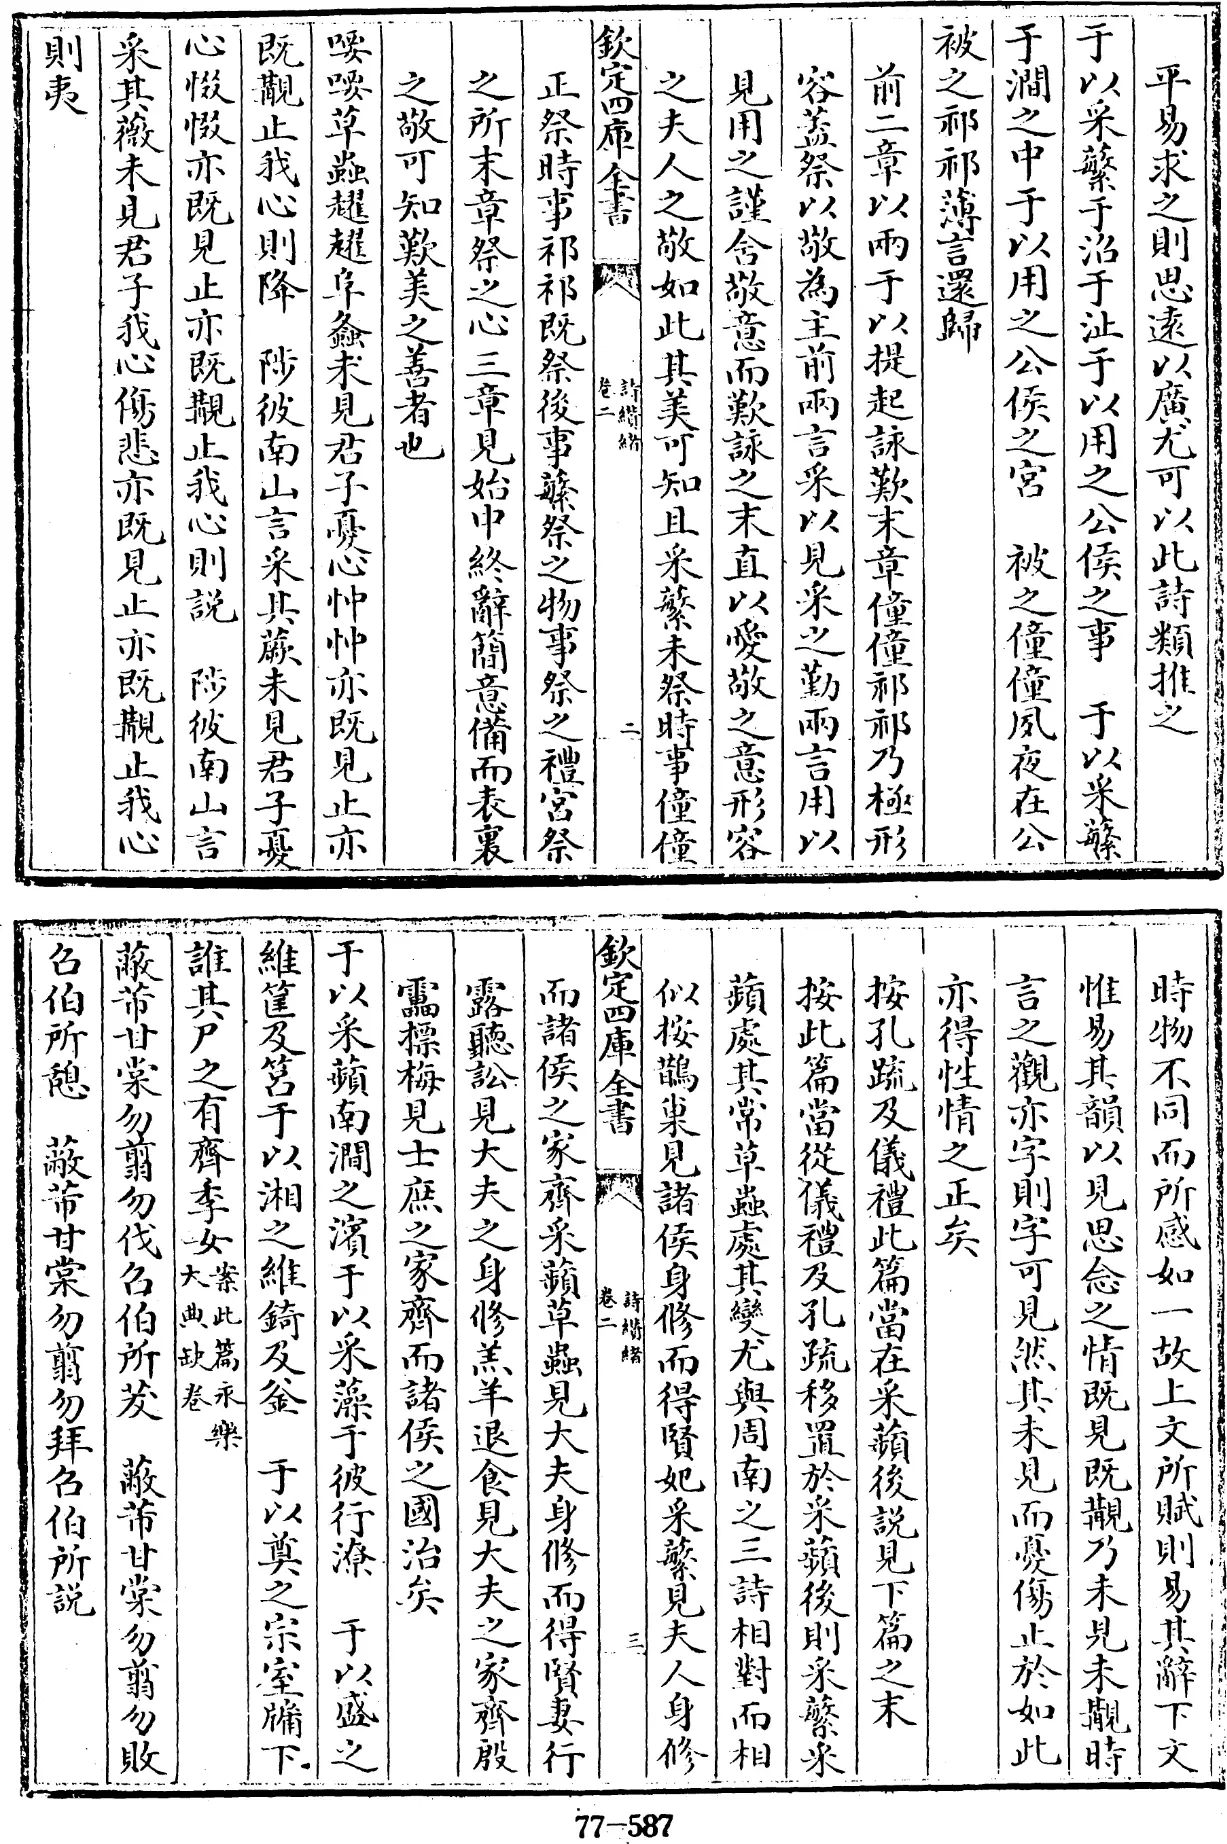 平易求之則思遠以廣尤可以此詩類推之
于以采蘩于沼于沚于以用之公侯之事　于以采蘩
于澗之中于以用之公侯之宮　被之僮僮夙夜在公
被之祁祁薄言還歸
前二章以兩于以提起詠歎末章僮僮祁祁乃極形
容蓋祭以敬為主前兩言采以見采之勤兩言用以
見用之謹含敬意而歎詠之末直以愛敬之意形容
之夫人之敬如此其美可知且采蘩未祭時事僮僮
欽定四庫全書
詩纘緒
卷二
二
正祭時事祁祁既祭後事蘩祭之物事祭之禮宮祭
之所末章祭之心三章見始中終辭簡意備而表裏
之敬可知歎美之善者也
喓喓草蟲趯趯阜螽未見君子憂心忡忡亦既見止亦
既觀止我心則降　陟彼南山言采其蕨未見君子憂
心惙惙亦既見止亦既觀止我心則說　陟彼南山言
采其薇未見君子我心傷悲亦既見止亦既觀止我心
則夷
時物不同而所感如一故上文所賦則易其辭下文
惟易其韻以見思念之情既見既觀乃未見未觀時
言之觀亦字則字可見然其未見而憂傷止於如此
亦得性情之正矣
按孔疏及儀禮此篇當在采蘋後說見下篇之末
按此篇當從儀禮及孔疏移置於采蘋後則采蘩采
蘋處其常草蟲處其變尤與周南之三詩相對而相
似按鵲巢見諸侯身修而得賢妃采蘩見夫人身修
欽定四庫全書
詩纘緒
卷二
三
而諸侯之家齊采蘋草蟲見大夫身修而得賢妻行
露聽訟見大夫之身修羔羊退食見大夫之家齊殷
靁摽梅見士庶之家齊而諸侯之國治矣
于以采蘋南澗之濱于以采藻于彼行潦　于以盛之
維筐及筥于以湘之維錡及釜　于以奠之宗室牖下
誰其尸之有齊季女
案此篇永樂
大典缺卷
蔽芾甘棠勿翦勿伐召伯所茇　蔽芾甘棠勿翦勿敗
召伯所憩　蔽芾甘棠勿翦勿拜召伯所說
77-587